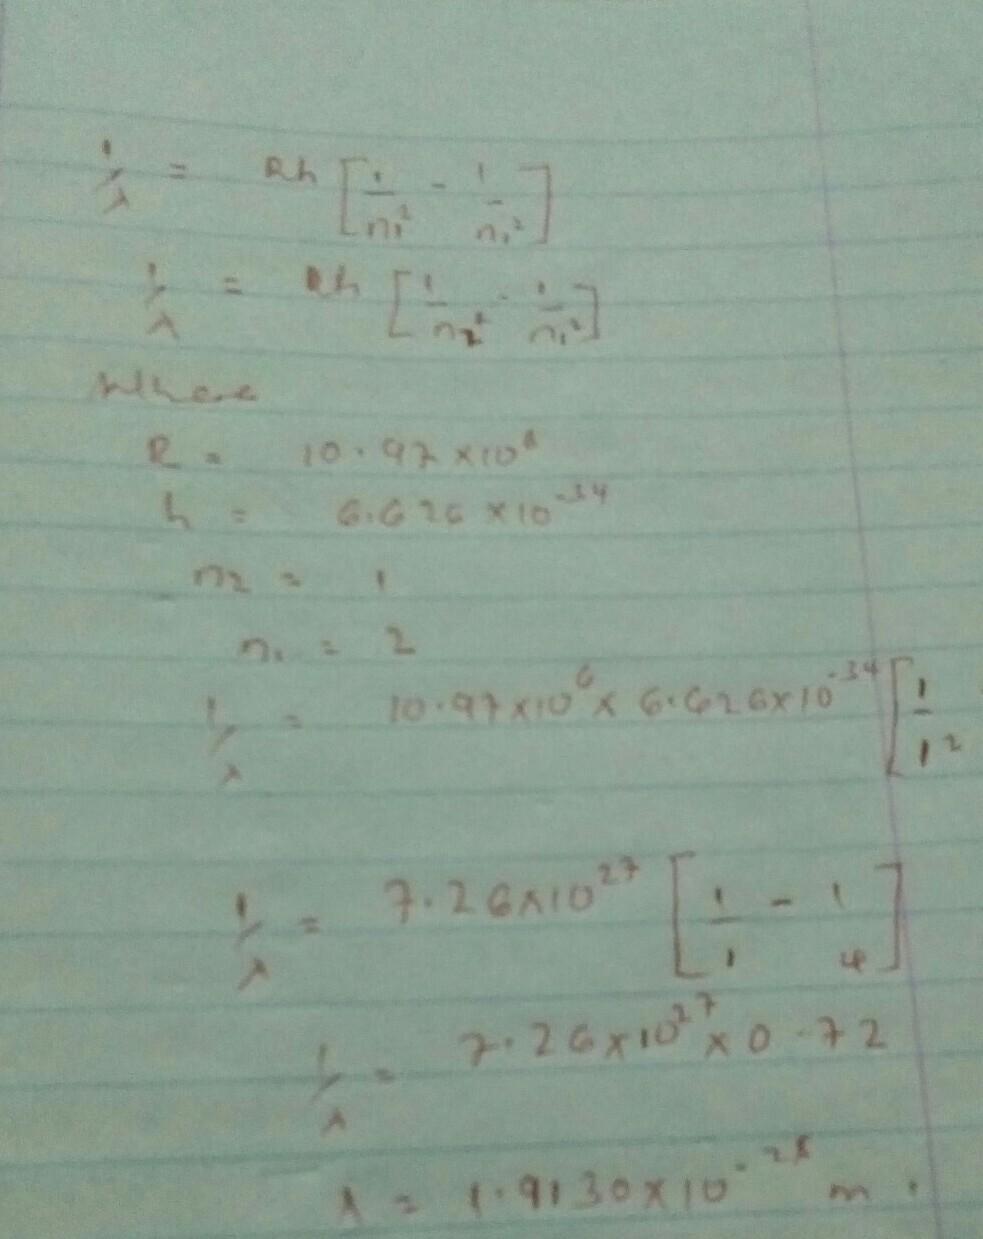 1/λ = Rh [1/n₁² - 1/n₁²]
1/λ = Rh [1/n₂² - 1/n₁²]
Where
R = 10.97 ×10⁶
h = 6.626 ×10⁻³⁴
n₂ = 1
n₁ = 2
1/λ = 10.97×10⁶ × 6.626×10⁻³⁴ [1/1²
1/λ = 7.26×10²⁷ [1/1 - 1/4]
1/λ = 7.26×10²⁷ × 0.72
λ = 1.9130×10⁻²⁸ m.